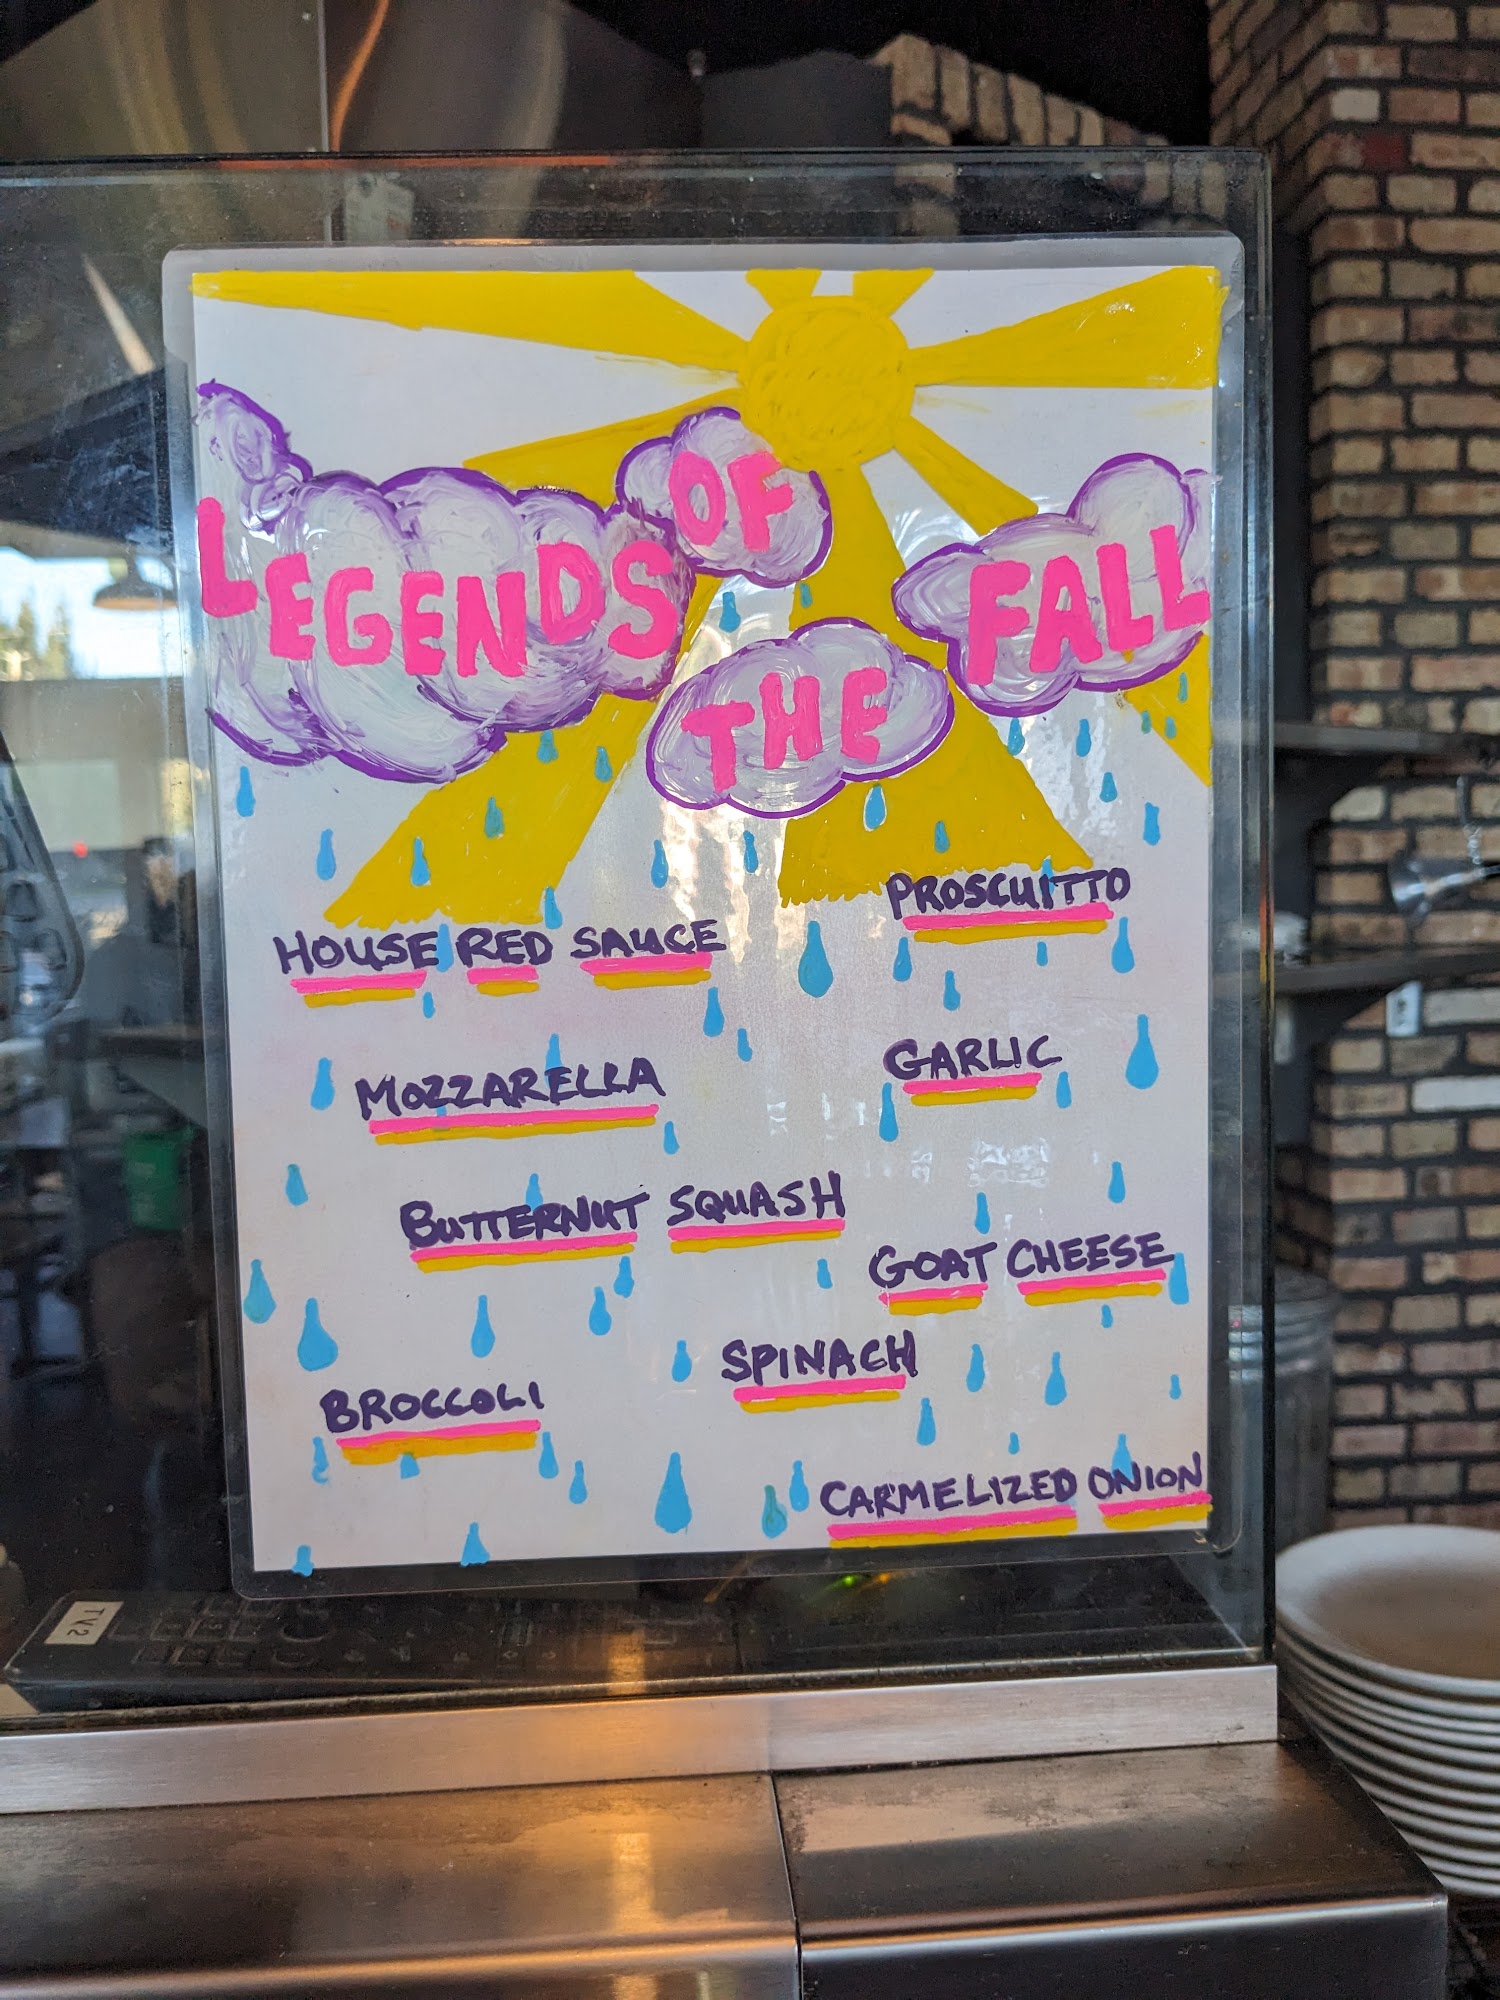 LEGENDS OF
THE FALL
PROSCUITTO
HOUSE RED SAUCE
GARLIC
MOZZARELLA
BUTTERNUT SQUASH
GOAT CHEESE
SPINACH
BROCCOLI
CARMELIZED ONION
TV2